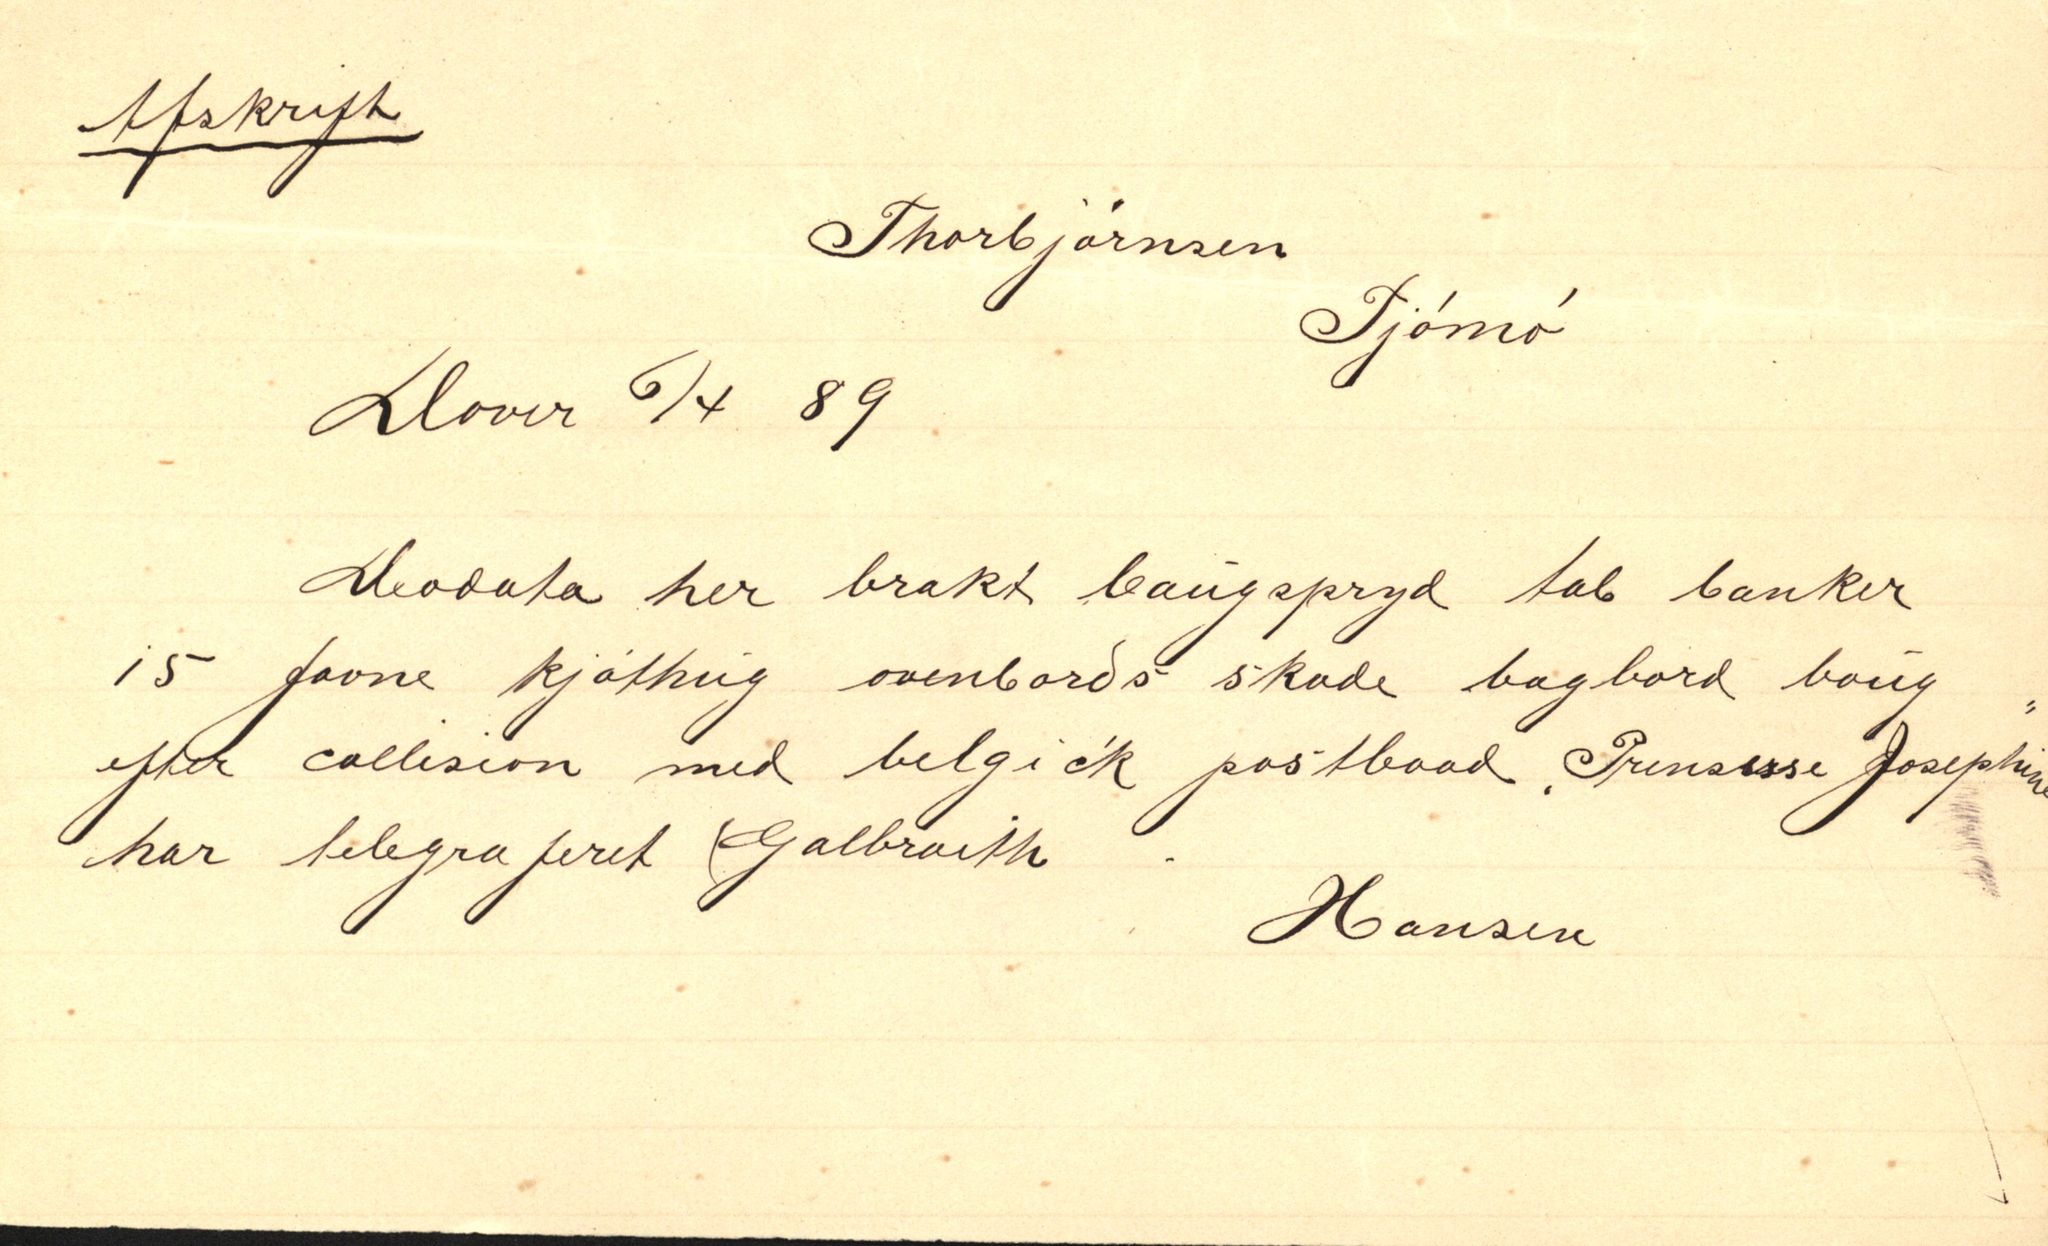 Afskrift
Thorbjörnsen
Tjómó
Dover 6/4 89
Deodata her brakt baugspryd tab banker
15 favne kjóthug ovenbords skade bagbord boug
efter collision med belgick postbaad „Prensesse Josephine"
har telegraferet Galbraith.
Hansen